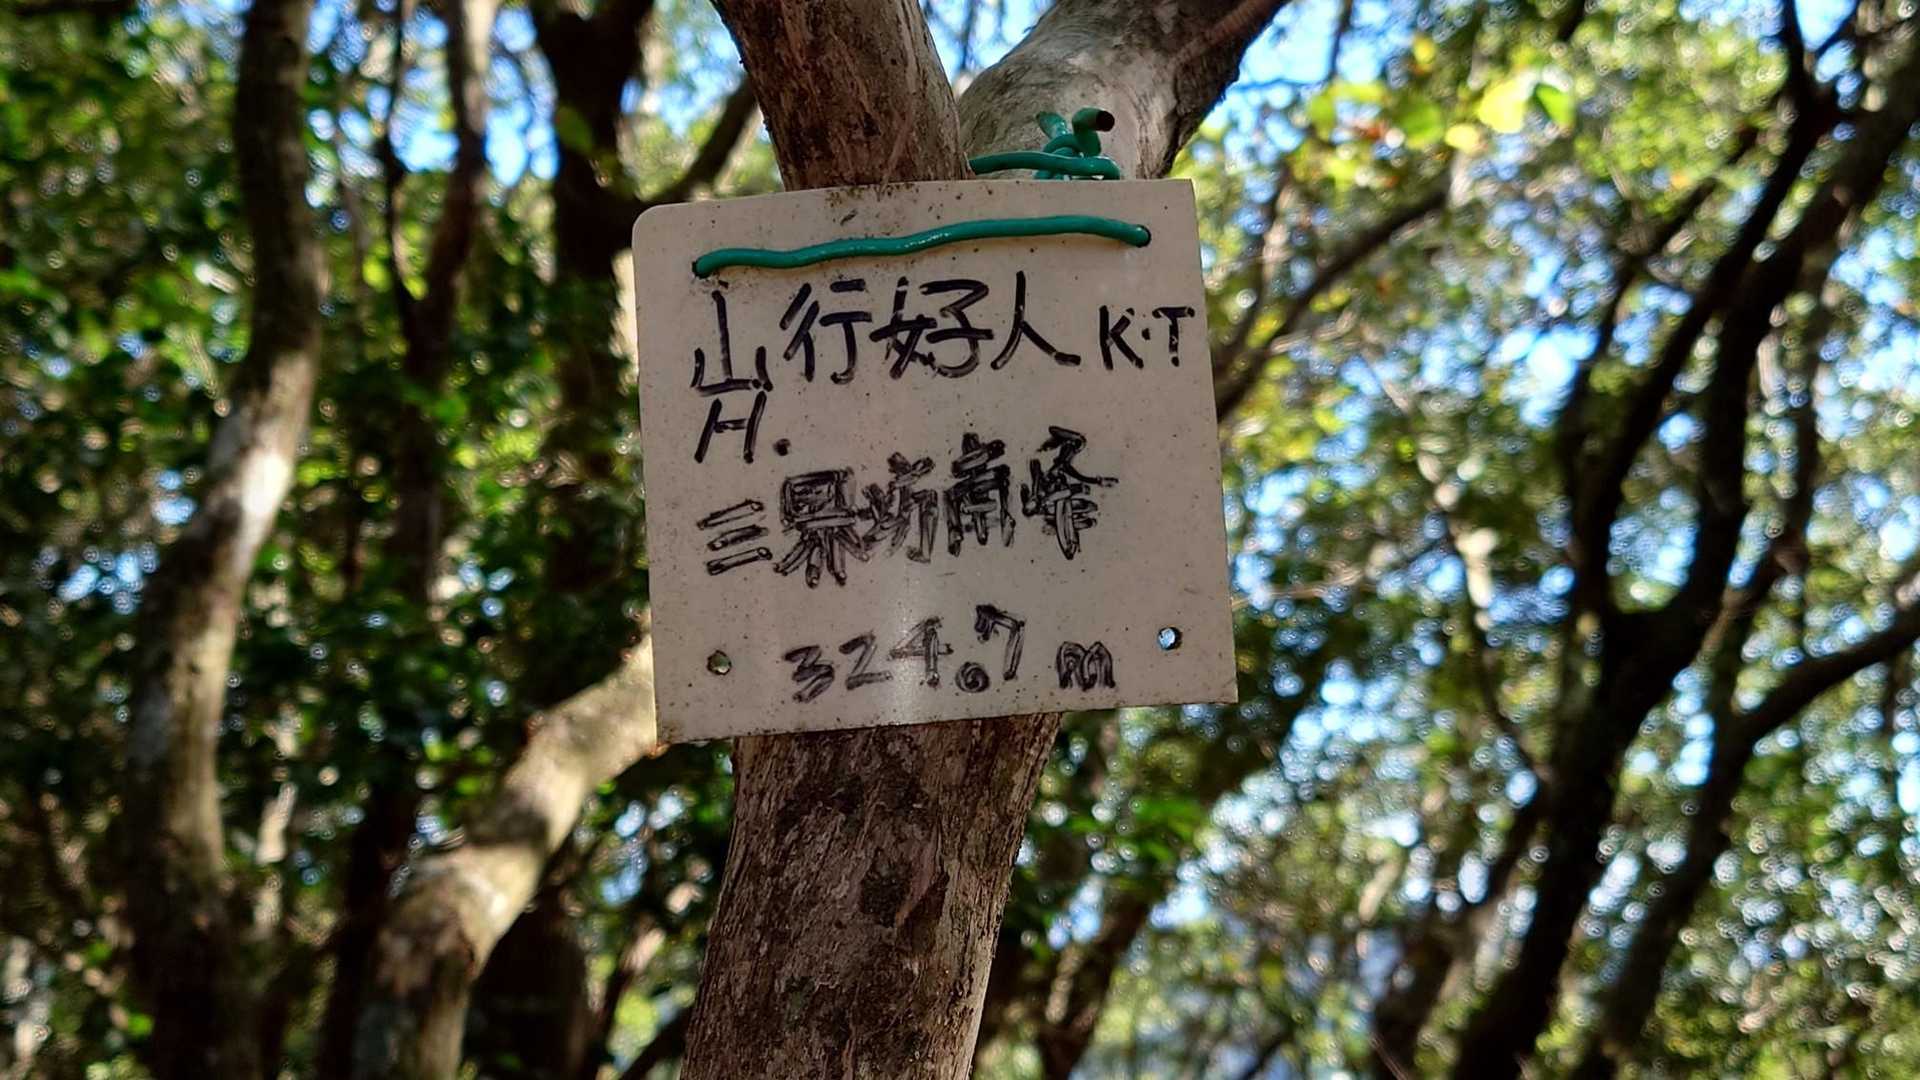 山行好人 K.T
H.
三界坊南峰
324.7 m